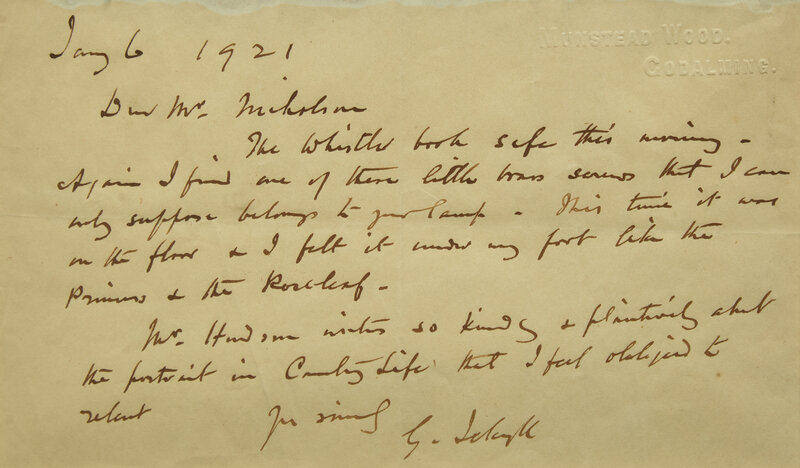 MUNSTEAD WOOD.
GODALMING.
Jany 6 1921
Dear Mr. Nicholson
The Whistler book safe this morning -
Again I find one of these little brass screws that I can
only suppose belongs to your lamp - This time it was
on the floor & I felt it under my foot like the
Princess & the Roseleaf -
Mr. Hudson writes so kindly & plaintively abt
the portrait in Country Life that I feel obliged to
relent
Yrs sincely
G. Jekyll